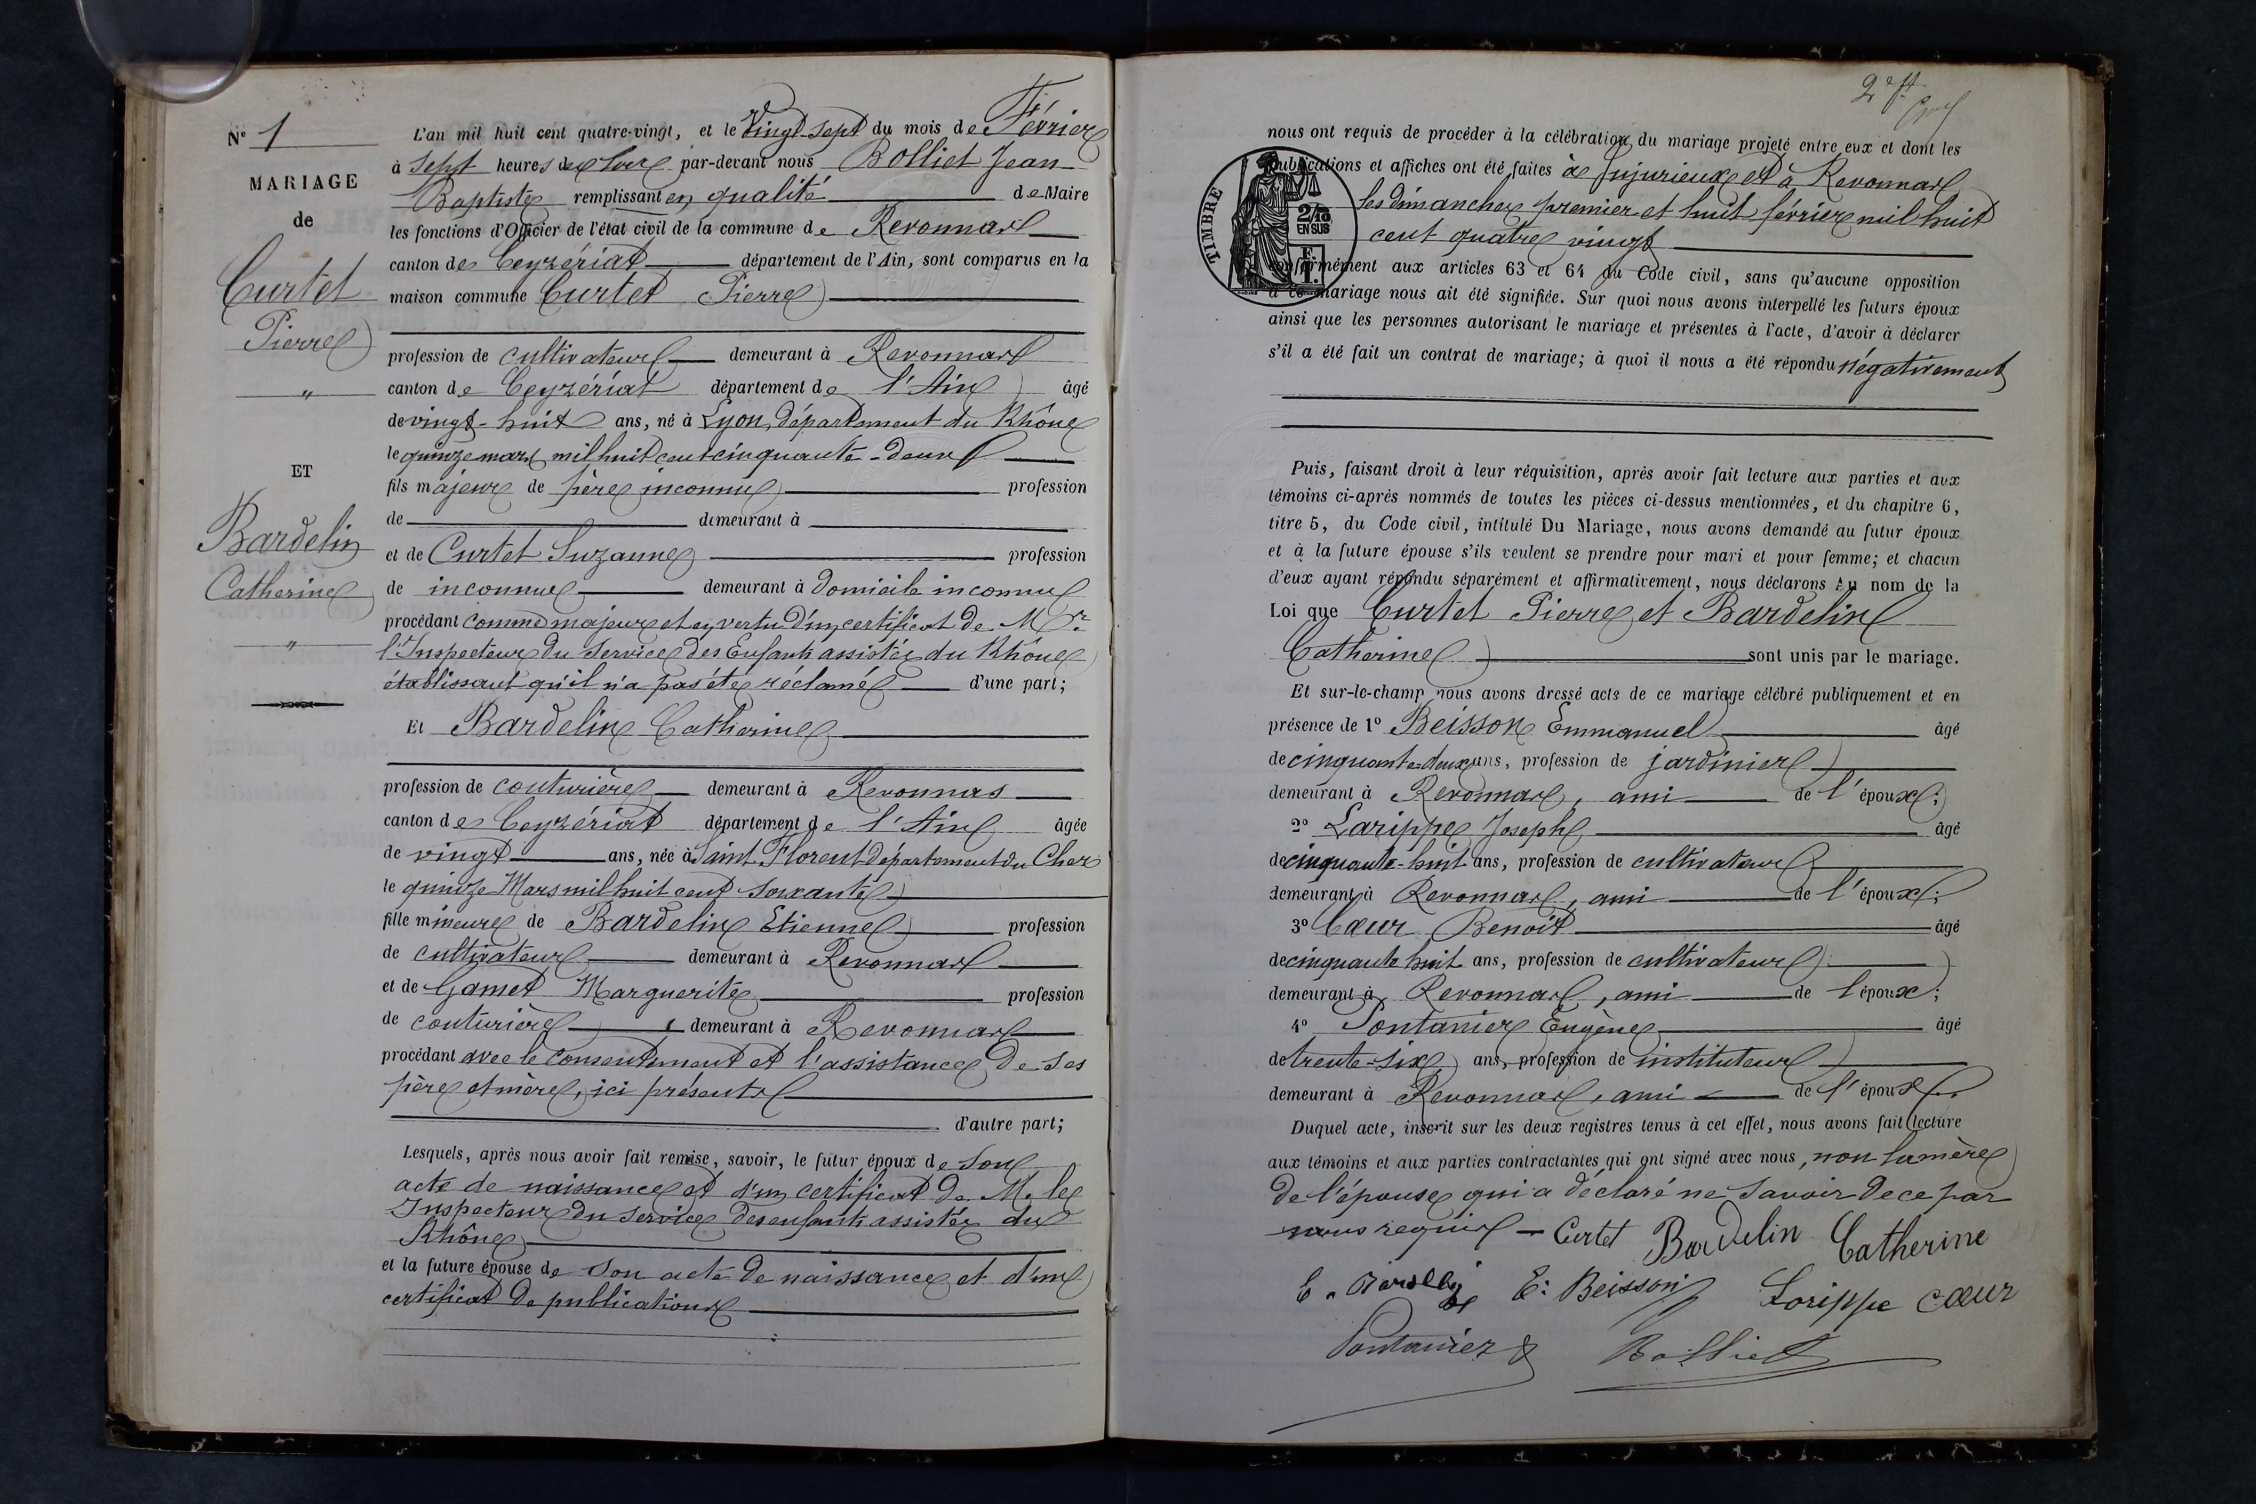 N° 1
MARIAGE
de
Curtet
Pierre
"
ET
Bardelin
Catherine
"
L'an mil huit cent quatre-vingt, et le Vingt-sept du mois de Février
à sept heures du soir par-devant nous Bolliet Jean
Baptiste remplissant en qualité de Maire
les fonctions d'Officier de l'état civil de la commune de Revonnas
canton de Ceyzériat département de l'Ain, sont comparus en la
maison commune Curtet Pierre
profession de cultivateur demeurant à Revonnas
canton de Ceyzériat département de l'Ain âgé
de vingt-huit ans, né à Lyon, département du Rhône
le quinze mars mil huit cent cinquante-deux
fils majeur de père inconnu profession
de demeurant à
et de Curtet Suzanne profession
de inconnue demeurant à domicile inconnu
procédant comme majeur et en vertu d'un certificat de Mr
l'Inspecteur du service des Enfants assistés du Rhône
établissant qu'il n'a pas été réclamé d'une part;
Et Bardelin Catherine
profession de couturière demeurant à Revonnas
canton de Ceyzériat département de l'Ain âgée
de vingt ans, née à Saint Florent département du Cher
le quinze Mars mil huit cent soixante
fille mineure de Bardelin Etienne profession
de cultivateur demeurant à Revonnas
et de Gamet Marguerite profession
de couturière demeurant à Revonnas
procédant avec le consentement et l'assistance de ses
père et mère, ici présents
d'autre part;
Lesquels, après nous avoir fait remise, savoir, le futur époux de son
acte de naissance et d'un certificat de M. le
Inspecteur du service des enfants assistés du
Rhône
et la future épouse de son acte de naissance et d'un
certificat de publications
2e ft
nous ont requis de procéder à la célébration du mariage projeté entre eux et dont les
publications et affiches ont été faites à Jujurieux et à Revonnas
les dimanches premier et huit février mil huit
cent quatre vingt
TIMBRE
2/10
EN SUS
conformément aux articles 63 et 64 du Code civil, sans qu'aucune opposition
à ce mariage nous ait été signifiée. Sur quoi nous avons interpellé les futurs époux
ainsi que les personnes autorisant le mariage et présentes à l'acte, d'avoir à déclarer
s'il a été fait un contrat de mariage; à quoi il nous a été répondu négativement
Puis, faisant droit à leur réquisition, après avoir fait lecture aux parties et aux
témoins ci-après nommés de toutes les pièces ci-dessus mentionnées, et du chapitre 6,
titre 5, du Code civil, intitulé Du Mariage, nous avons demandé au futur époux
et à la future épouse s'ils veulent se prendre pour mari et pour femme; et chacun
d'eux ayant répondu séparément et affirmativement, nous déclarons au nom de la
Loi que Curtet Pierre et Bardelin
Catherine sont unis par le mariage.
Et sur-le-champ nous avons dressé acte de ce mariage célébré publiquement et en
présence de 1° Beisson Emmanuel âgé
de cinquante-deux ans, profession de jardinier
demeurant à Revonnas, ami de l'époux;
2° Larippe Joseph âgé
de cinquante-huit ans, profession de cultivateur
demeurant à Revonnas, ami de l'époux;
3° Cœur Benoit âgé
de cinquante huit ans, profession de cultivateur
demeurant à Revonnas, ami de l'époux;
4° Pontanier Eugène âgé
de trente-six ans, profession de instituteur
demeurant à Revonnas, ami de l'époux.
Duquel acte, inscrit sur les deux registres tenus à cet effet, nous avons fait lecture
aux témoins et aux parties contractantes qui ont signé avec nous, non la mère
de l'épouse qui a déclaré ne savoir de ce par
nous requis — Curtet Bardelin Catherine
E. Beisson Larippe cœur
Pontanier Bolliet